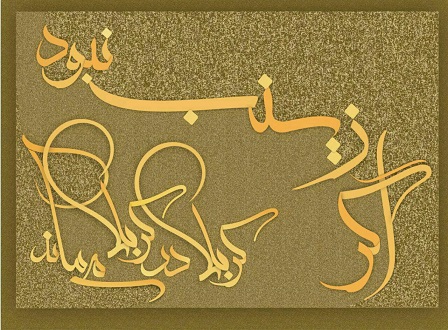 اگر زینب نبود
کربلا در کربلا می‌ماند